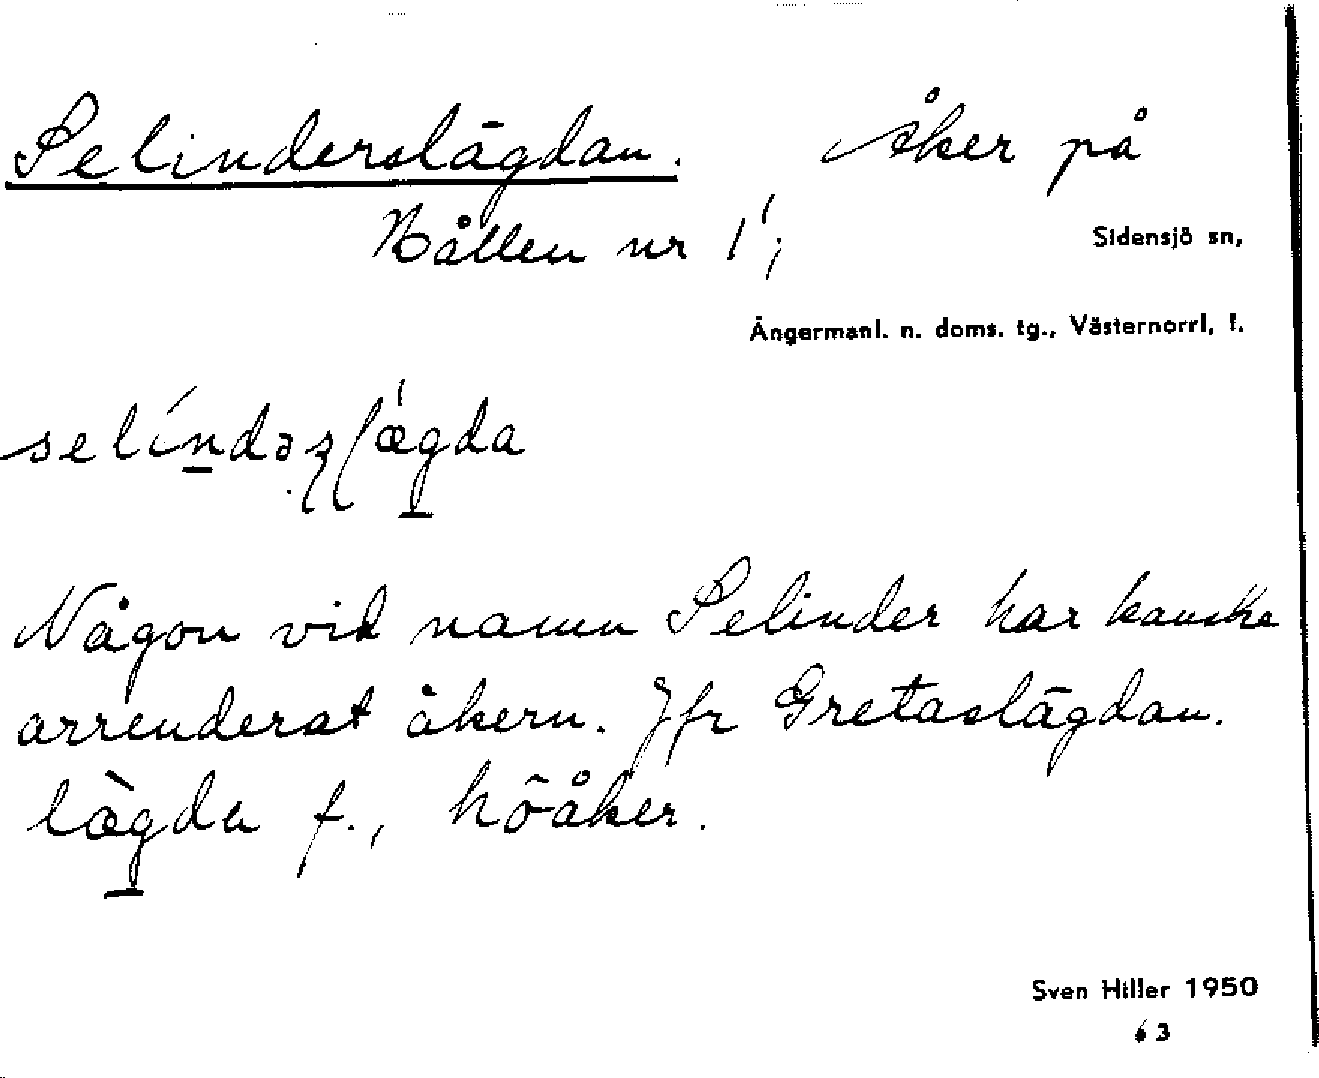 Selinderslägdan. åker på
Hållen nr 1¹;
Sidensjö sn,
Ångermanl. n. doms. tg., Västernorrl. l.
Någon vid namn Selinder har kanske
arrenderat åkern. Jfr Gretaslägdan.
lægda f., höåker.
Sven Hiller 1950
63